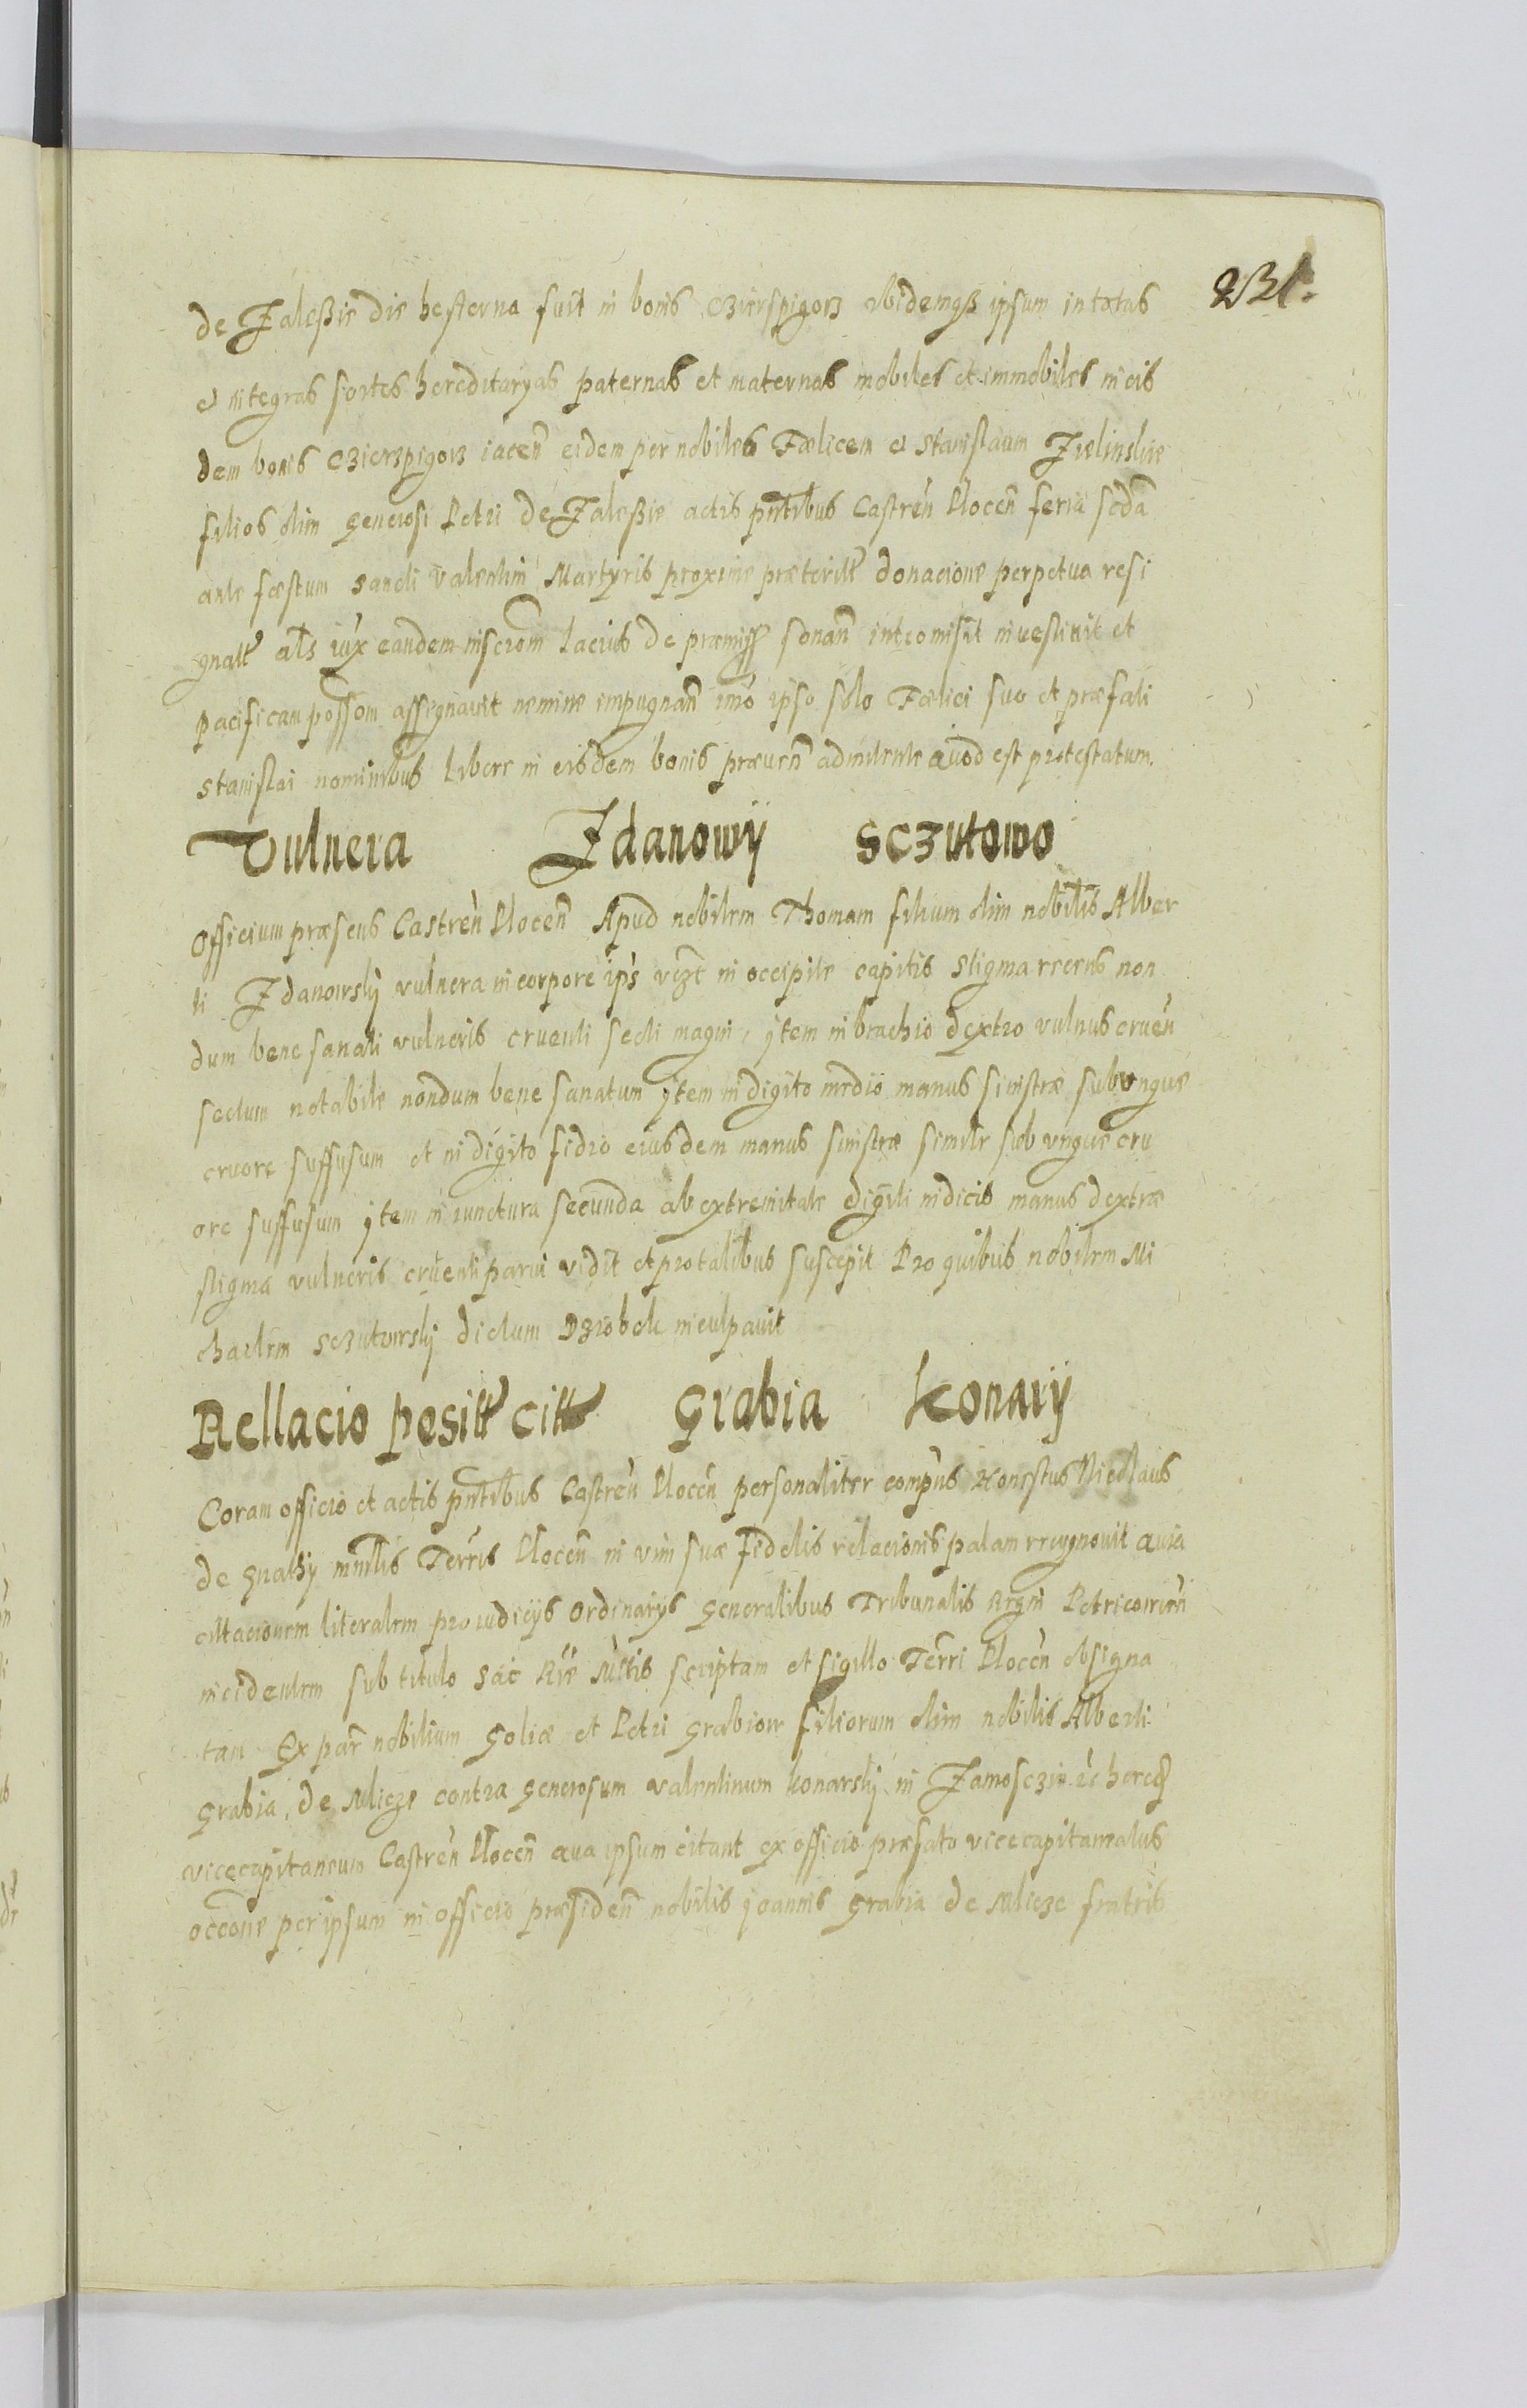 231.
de Zaleßie die hesterna fuit in bonis Czierspigorz ibidemqß ipsum in totas
et integras sortes hereditaryas paternas et maternas mobiles et immobiles in eis
dem bonis Czierzpigorz iacen eidem per nobiles Fœlicem et Stanislaum Zielinskie
filios olim Generosi Petri de Zaleßie actis pntibus Castren Plocen feria scda
ante fœstum Sancti Valentini Martyris proxime præteritt donacione perpetua resi
gnatt als iux eandem inscrom Lacius de præmiss sonan intromisit investiuit et
pacificam possom assignauit nemine impugnan imo ipso solo Fœlici suo et præfati
Stanislai nominibus libere in eisdem bonis præuen admitente quod est protestatum.
Vulnera Zdanowÿ Sczutowo
Officium præsens Castren Plocen Apud nobilem Thomam filium olim nobilis Alber
ti Zdanowskÿ vulnera in corpore ips vczt in occipite capitis stigma recens non
dum bene sanati vulneris cruenti secti magni, jtem in brachio dextro vulnus cruen
sectum notabile nondum bene sanatum jtem in digito medio manus sinistræ sub vngue
cruore suffusum et in digito fidro eiusdem manus sinistræ simile sub vngue cru
ore suffusum jtem in iunctura secunda ab extremitate digiti indicis manus dextræ
stigma vulneris cruenti parui vidit et pro talibus suscepit Pro quibus nobilem Mi
chaelem Sczutowskÿ dictum Dziobek inculpauit
Rellacio positt citt Grabia Konarÿ
Coram officio et actis pntibus Castren Plocen personaliter compns Honestus Nicolaus
de Gnathÿ mnrlis Terris Plocen in vim suæ fidelis relacionis palam recognouit quia
cittacionem literalem pro iudicÿs ordinarÿs Generalibus Tribunalis Regni Petricouien
incidentem sub titulo Sac Rie Mttis scriptam et sigillo Terri Plocen obsigna
tam Ex par nobilium Goliæ et Petri Grabiow filiorum olim nobilis Alberti
Grabia, de Mlicze contra Generosum Valentinum Konarskÿ in Zamosczie rc hered
vicecapitaneum Castren Plocen qua ipsum citant ex officio præfato vicecapitaneatus
occone per ipsum in officio præsiden nobilis Joannis Grabia de Mlicze fratris